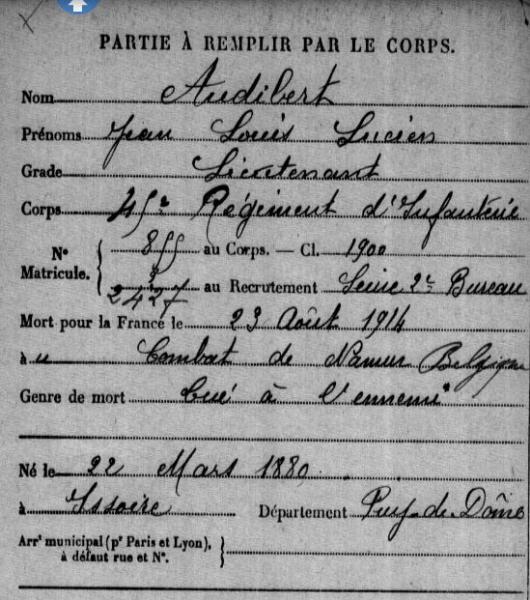 PARTIE À REMPLIR PAR LE CORPS.
Nom Audibert
Prénoms Jean Louis Lucien
Grade Lieutenant
Corps 45e Régiment d'Infanterie
N° Matricule. 855 au Corps. — Cl. 1900
2427 au Recrutement Seine 2e Bureau
Mort pour la France le 23 Août 1914
à u Combat de Namur Belgique
Genre de mort tué à l'ennemi
Né le 22 Mars 1880
à Issoire Département Puy-de-Dôme
Arrt municipal (pr Paris et Lyon),
à défaut rue et N°.